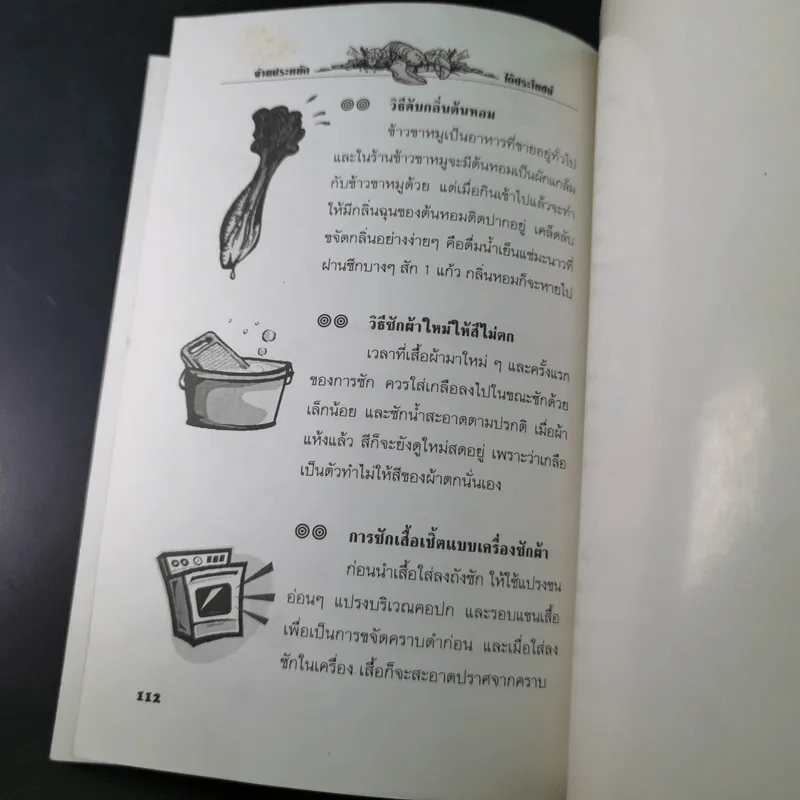 จ่ายประหยัด
ได้ประโยชน์
วิธีดับกลิ่นต้นหอม
ข้าวขาหมูเป็นอาหารที่ขายอยู่ทั่วไป
และในร้านข้าวขาหมูจะมีต้นหอมเป็นผักแกล้ม
กับข้าวขาหมูด้วย แต่เมื่อกินเข้าไปแล้วจะทำ
ให้มีกลิ่นฉุนของต้นหอมติดปากอยู่ เคล็ดลับ
ขจัดกลิ่นอย่างง่ายๆ คือดื่มน้ำเย็นแช่มะนาวที่
ฝานซีกบางๆ สัก 1 แก้ว กลิ่นหอมก็จะหายไป
วิธีซักผ้าใหม่ให้สีไม่ตก
เวลาที่เสื้อผ้ามาใหม่ ๆ และครั้งแรก
ของการซัก ควรใส่เกลือลงไปในขณะซักด้วย
เล็กน้อย และซักน้ำสะอาดตามปรกติ เมื่อผ้า
แห้งแล้ว สีก็จะยังดูใหม่สดอยู่ เพราะว่าเกลือ
เป็นตัวทำไม่ให้สีของผ้าตกนั่นเอง
การซักเสื้อเชิ้ตแบบเครื่องซักผ้า
ก่อนนำเสื้อใส่ลงถังซัก ให้ใช้แปรงขน
อ่อนๆ แปรงบริเวณคอปก และรอบแขนเสื้อ
เพื่อเป็นการขจัดคราบดำก่อน และเมื่อใส่ลง
ซักในเครื่อง เสื้อก็จะสะอาดปราศจากคราบ
112